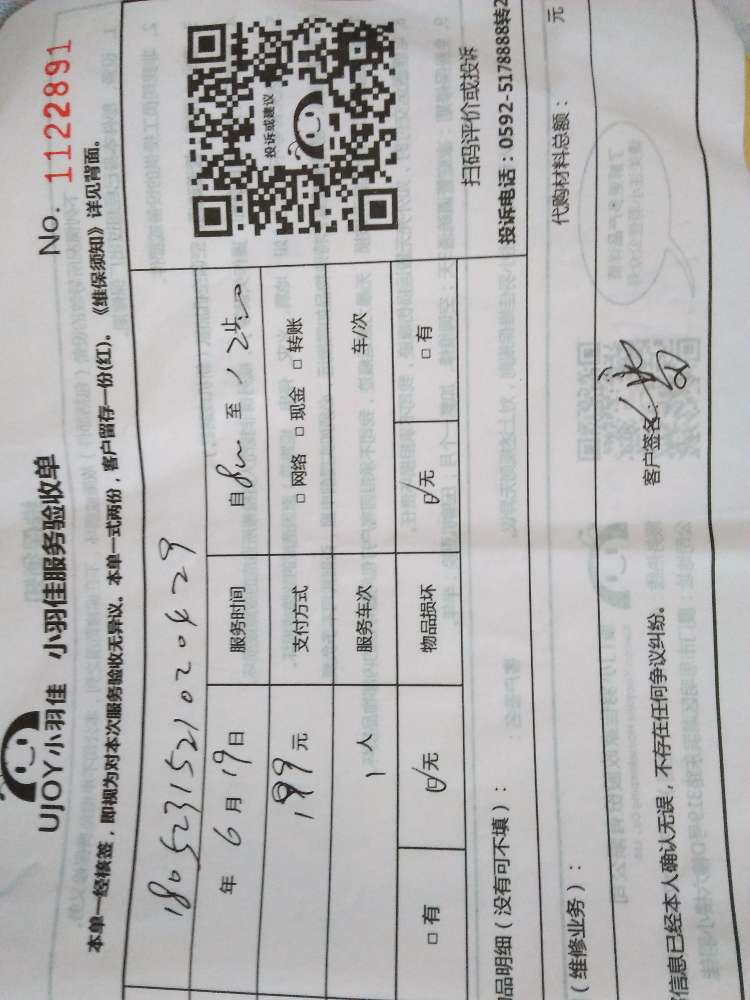 UJOY小羽佳 小羽佳服务验收单
No. 1122891
本单一经核签，即视为对本次服务验收无异议。本单一式两份，客户留存一份(红)。《维保须知》详见背面。
180523152102020429
年 6 月 19 日 服务时间 自 8 至 12
199 元 支付方式 □ 网络 □ 现金 □ 转账
1 人 服务车次 车/次
□ 有 □ 无 物品损坏 □ 无 □ 有
投诉或建议
扫码评价或投诉
投诉电话：0592-5178888转2
品明细（没有可不填）：
（维修业务）： 代购材料总额： 元
信息已经本人确认无误，不存在任何争议纠纷。 客户签名：